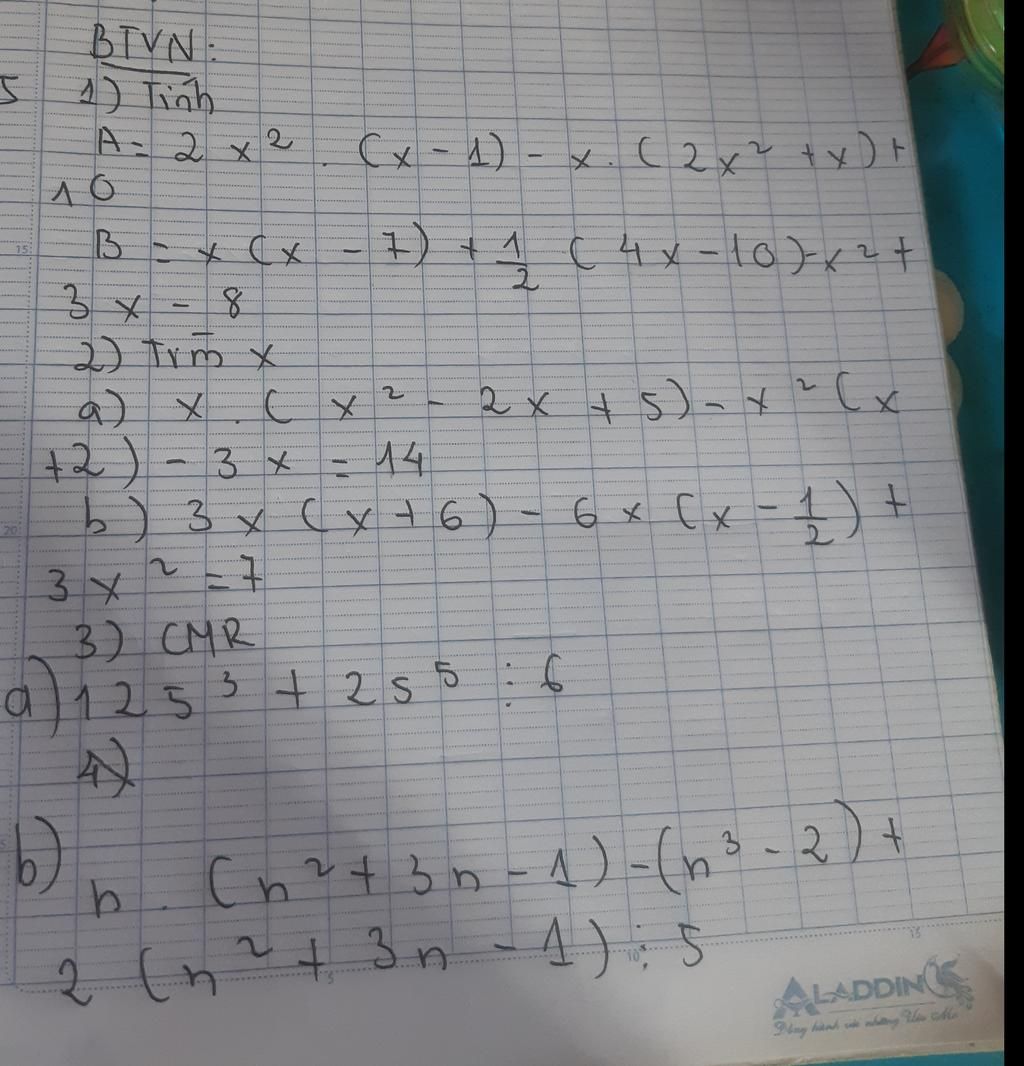 BTVN:
5
1) Tính
A = 2x² . (x - 1) - x. (2x² + x) +
10
B = x (x - 7) + 1/2 (4x - 10) - x² +
3x - 8
2) Tìm x
a) x . (x² - 2x + 5) - x² (x
+2) - 3x = 14
b) 3x (x + 6) - 6x (x - 1/2) +
3x² = 7
3) CMR
a) 125³ + 25⁵ ⋮ 6
4)
b) n . (n² + 3n - 1) - (n³ - 2) +
2 (n² + 3n - 1) ⋮ 5
15
20
5
10
15
ALADDIN